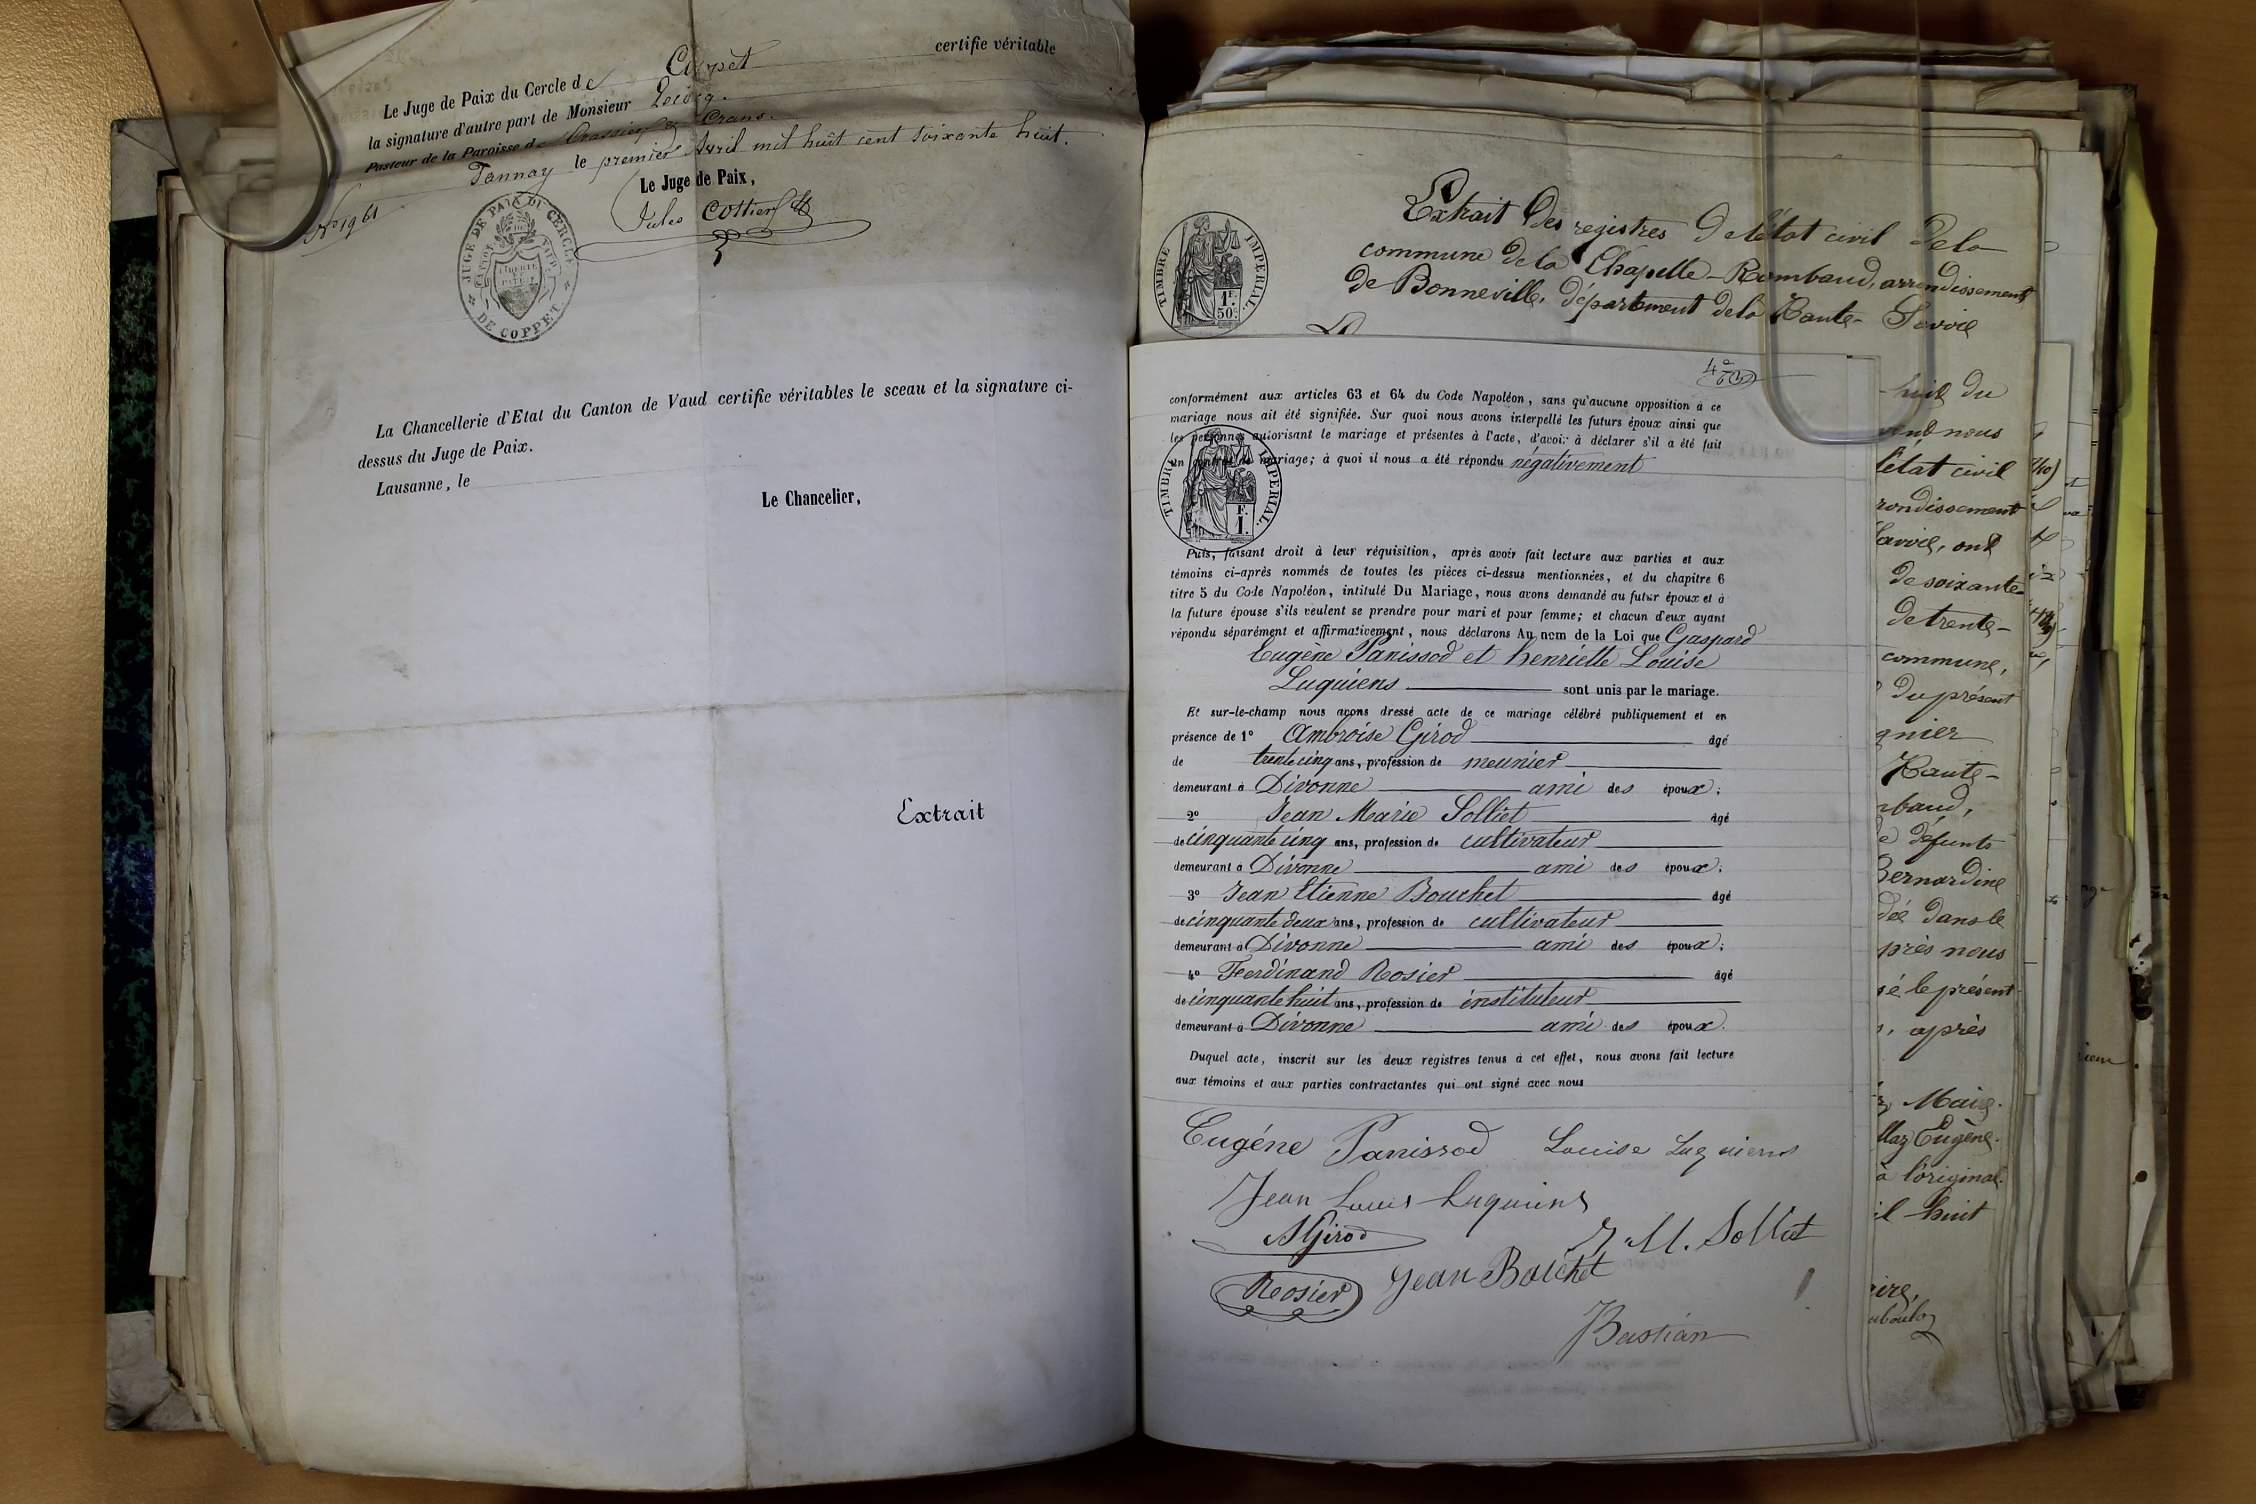 certifie véritable
Le Juge de Paix du Cercle de Coppet
la signature d'autre part de Monsieur
Pasteur de la Paroisse de Crassier & Crans.
Tannay le premier Avril mil huit cent soixante huit.
Le Juge de Paix,
Jules Cottier
N° 1961
JUGE DE PAIX DU CERCLE
CANTON DE VAUD
LIBERTÉ ET PATRIE
DE COPPET
La Chancellerie d'Etat du Canton de Vaud certifie véritables le sceau et la signature ci-
dessus du Juge de Paix.
Lausanne, le
Le Chancelier,
Extrait
Extrait des registres de l'état civil de la
commune de la Chapelle-Rambaud, arrondissement
de Bonneville, département de la Haute-Savoie
TIMBRE IMPERIAL
1F. 50c.
conformément aux articles 63 et 64 du Code Napoléon, sans qu'aucune opposition à ce
mariage nous ait été signifiée. Sur quoi nous avons interpellé les futurs époux ainsi que
les personnes autorisant le mariage et présentes à l'acte, d'avoir à déclarer s'il a été fait
un contrat de mariage; à quoi il nous a été répondu négativement
TIMBRE IMPERIAL.
F. 1.
Puis, faisant droit à leur réquisition, après avoir fait lecture aux parties et aux
témoins ci-après nommés de toutes les pièces ci-dessus mentionnées, et du chapitre 6
titre 5 du Code Napoléon, intitulé Du Mariage, nous avons demandé au futur époux et à
la future épouse s'ils veulent se prendre pour mari et pour femme; et chacun d'eux ayant
répondu séparément et affirmativement, nous déclarons Au nom de la Loi que Gaspard
Eugène Panissod et henriette Louise
Luquiens sont unis par le mariage.
Et sur-le-champ nous avons dressé acte de ce mariage célébré publiquement et en
présence de 1° Ambroise Girod âgé
de trente cinq ans, profession de meunier
demeurant à Divonne ami des époux;
2° Jean Marie Solliet âgé
de cinquante cinq ans, profession de cultivateur
demeurant à Divonne ami des époux;
3° Jean Etienne Bouchet âgé
de cinquante deux ans, profession de cultivateur
demeurant à Divonne ami des époux;
4° Ferdinand Rosier âgé
de cinquante huit ans, profession de instituteur
demeurant à Divonne ami des époux.
Duquel acte, inscrit sur les deux registres tenus à cet effet, nous avons fait lecture
aux témoins et aux parties contractantes qui ont signé avec nous
Eugéne Panissod Louise Luquiens
Jean Louis Luquiens
AGirod
J. M. Solliet
Rosier Jean Bouchet
Bastian
huit du
nous
l'état civil
rondissement
Savoie, ont
de soixante-
de trente-
commune,
du présent
gnier
Haute-
mbaud,
de défunts
Bernardine
dée dans le
près nous
sé le présent
, après
Maire.
llaz Eugène.
à l'original.
il huit
aire,